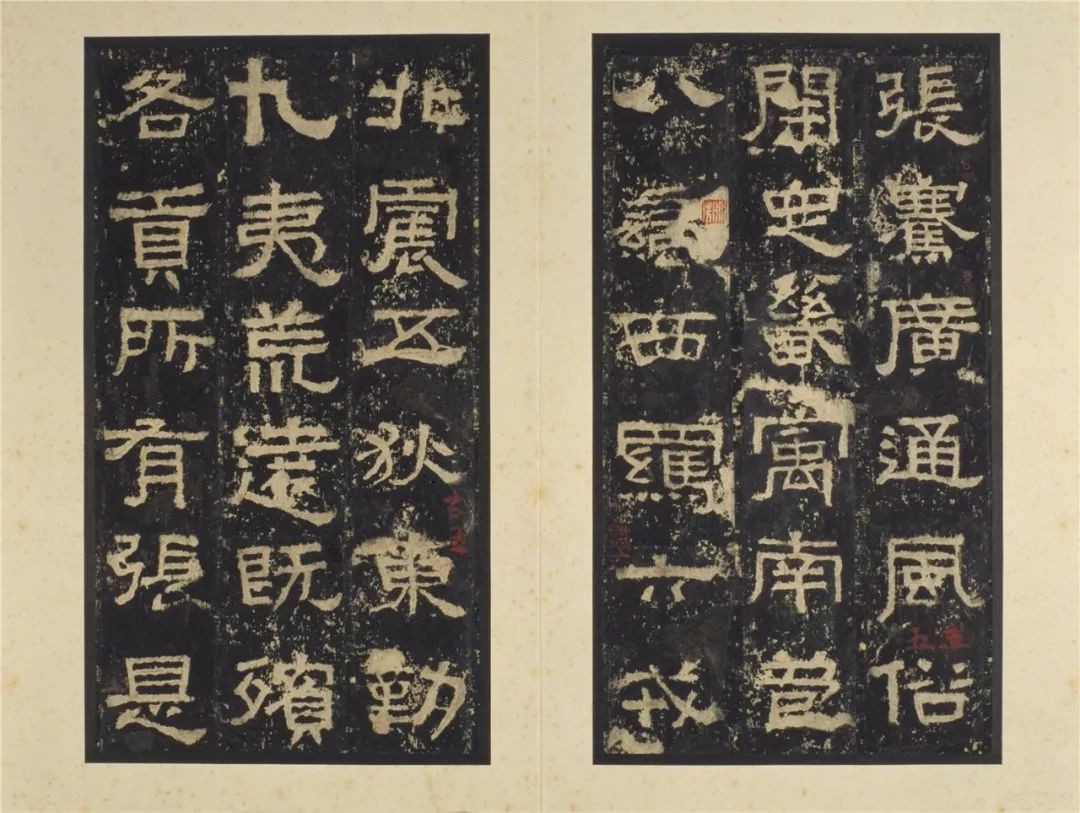 張騫廣通風俗
開定畿寓南苞
八蠻西羈六戎
北震五狄東勤
九夷荒遠既殯
各貢所有張是